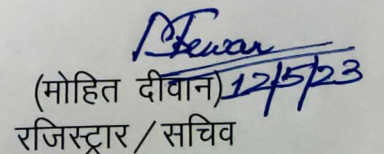 (मोहित दीवान) 12/5/23
रजिस्ट्रार / सचिव